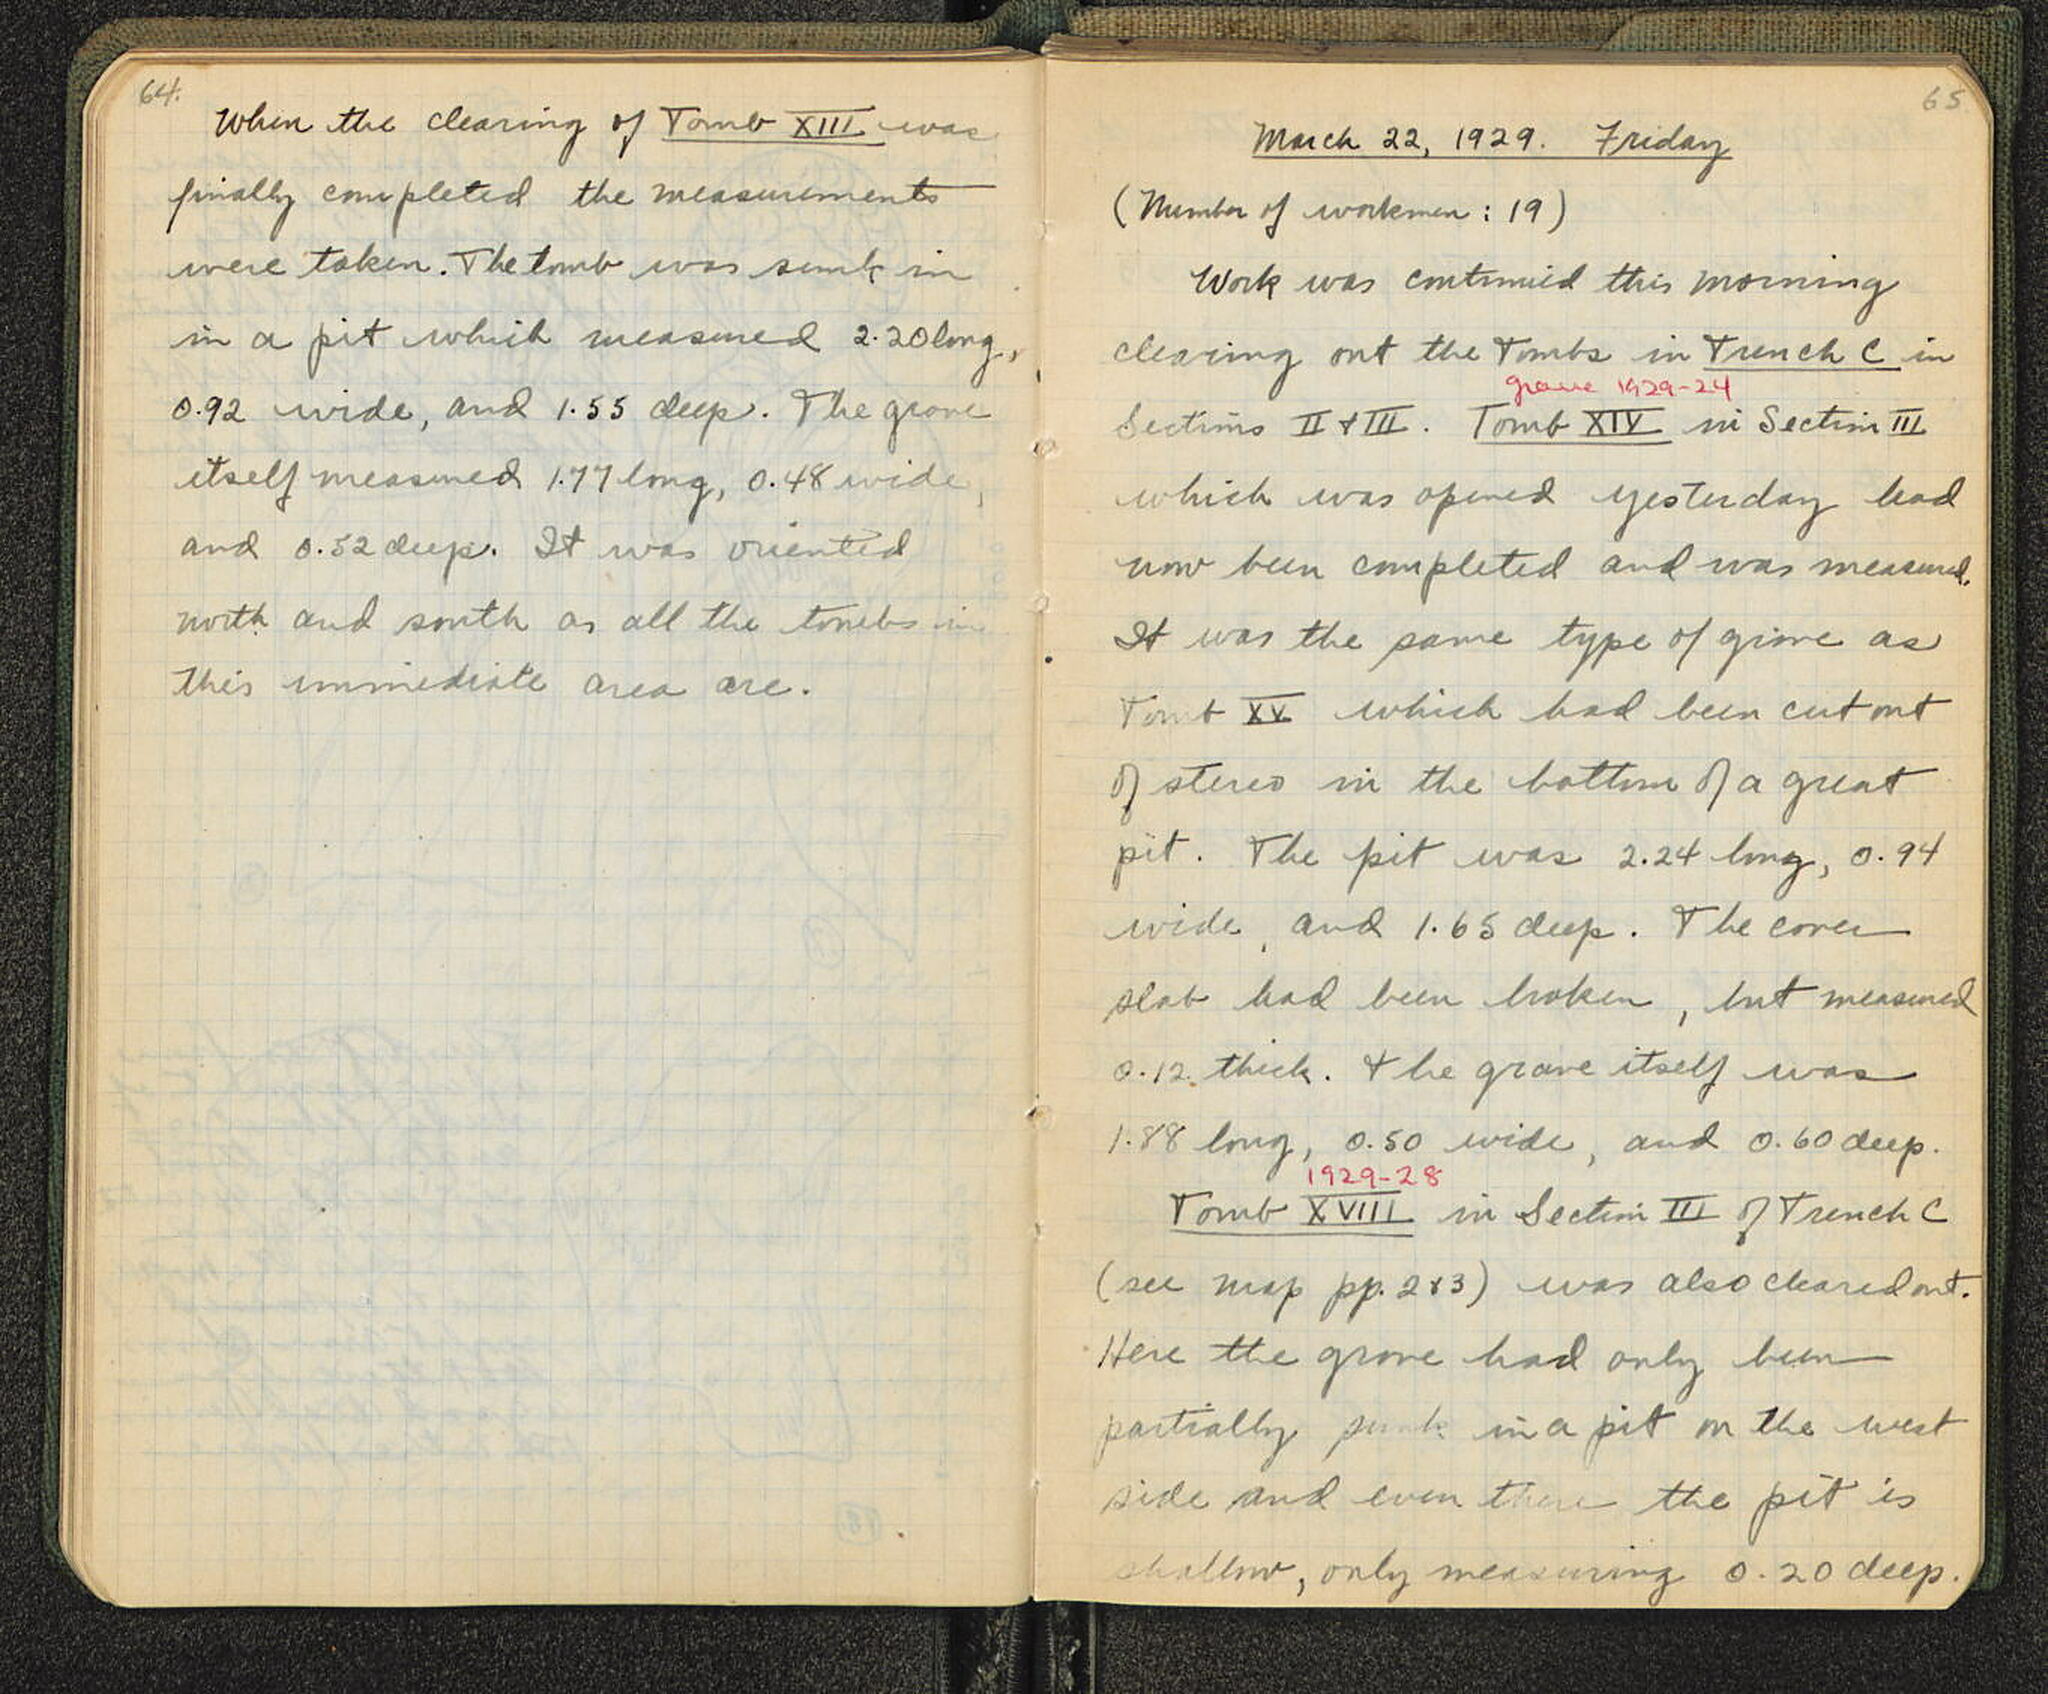 64.
When the clearing of Tomb XIII was
finally completed the measurements
were taken. The tomb was sunk in
in a pit which measured 2.20 long,
0.92 wide, and 1.55 deep. The grave
itself measured 1.77 long, 0.48 wide,
and 0.52 deep. It was oriented
north and south as all the tombs in
this immediate area are.
65
March 22, 1929. Friday
(Number of workmen: 19)
Work was continued this morning
clearing out the Tombs in Trench C in
grave 1929-24
Sections II & III. Tomb XIV in Section III
which was opened yesterday had
now been completed and was measured.
It was the same type of grave as
Tomb XV which had been cut out
of stereo in the bottom of a great
pit. The pit was 2.24 long, 0.94
wide, and 1.65 deep. The cover
slab had been broken, but measured
0.12 thick. The grave itself was
1.88 long, 0.50 wide, and 0.60 deep.
1929-28
Tomb XVIII in Section III of Trench C
(see map pp. 2&3) was also cleared out.
Here the grave had only been
partially sunk in a pit on the west
side and even there the pit is
shallow, only measuring 0.20 deep.